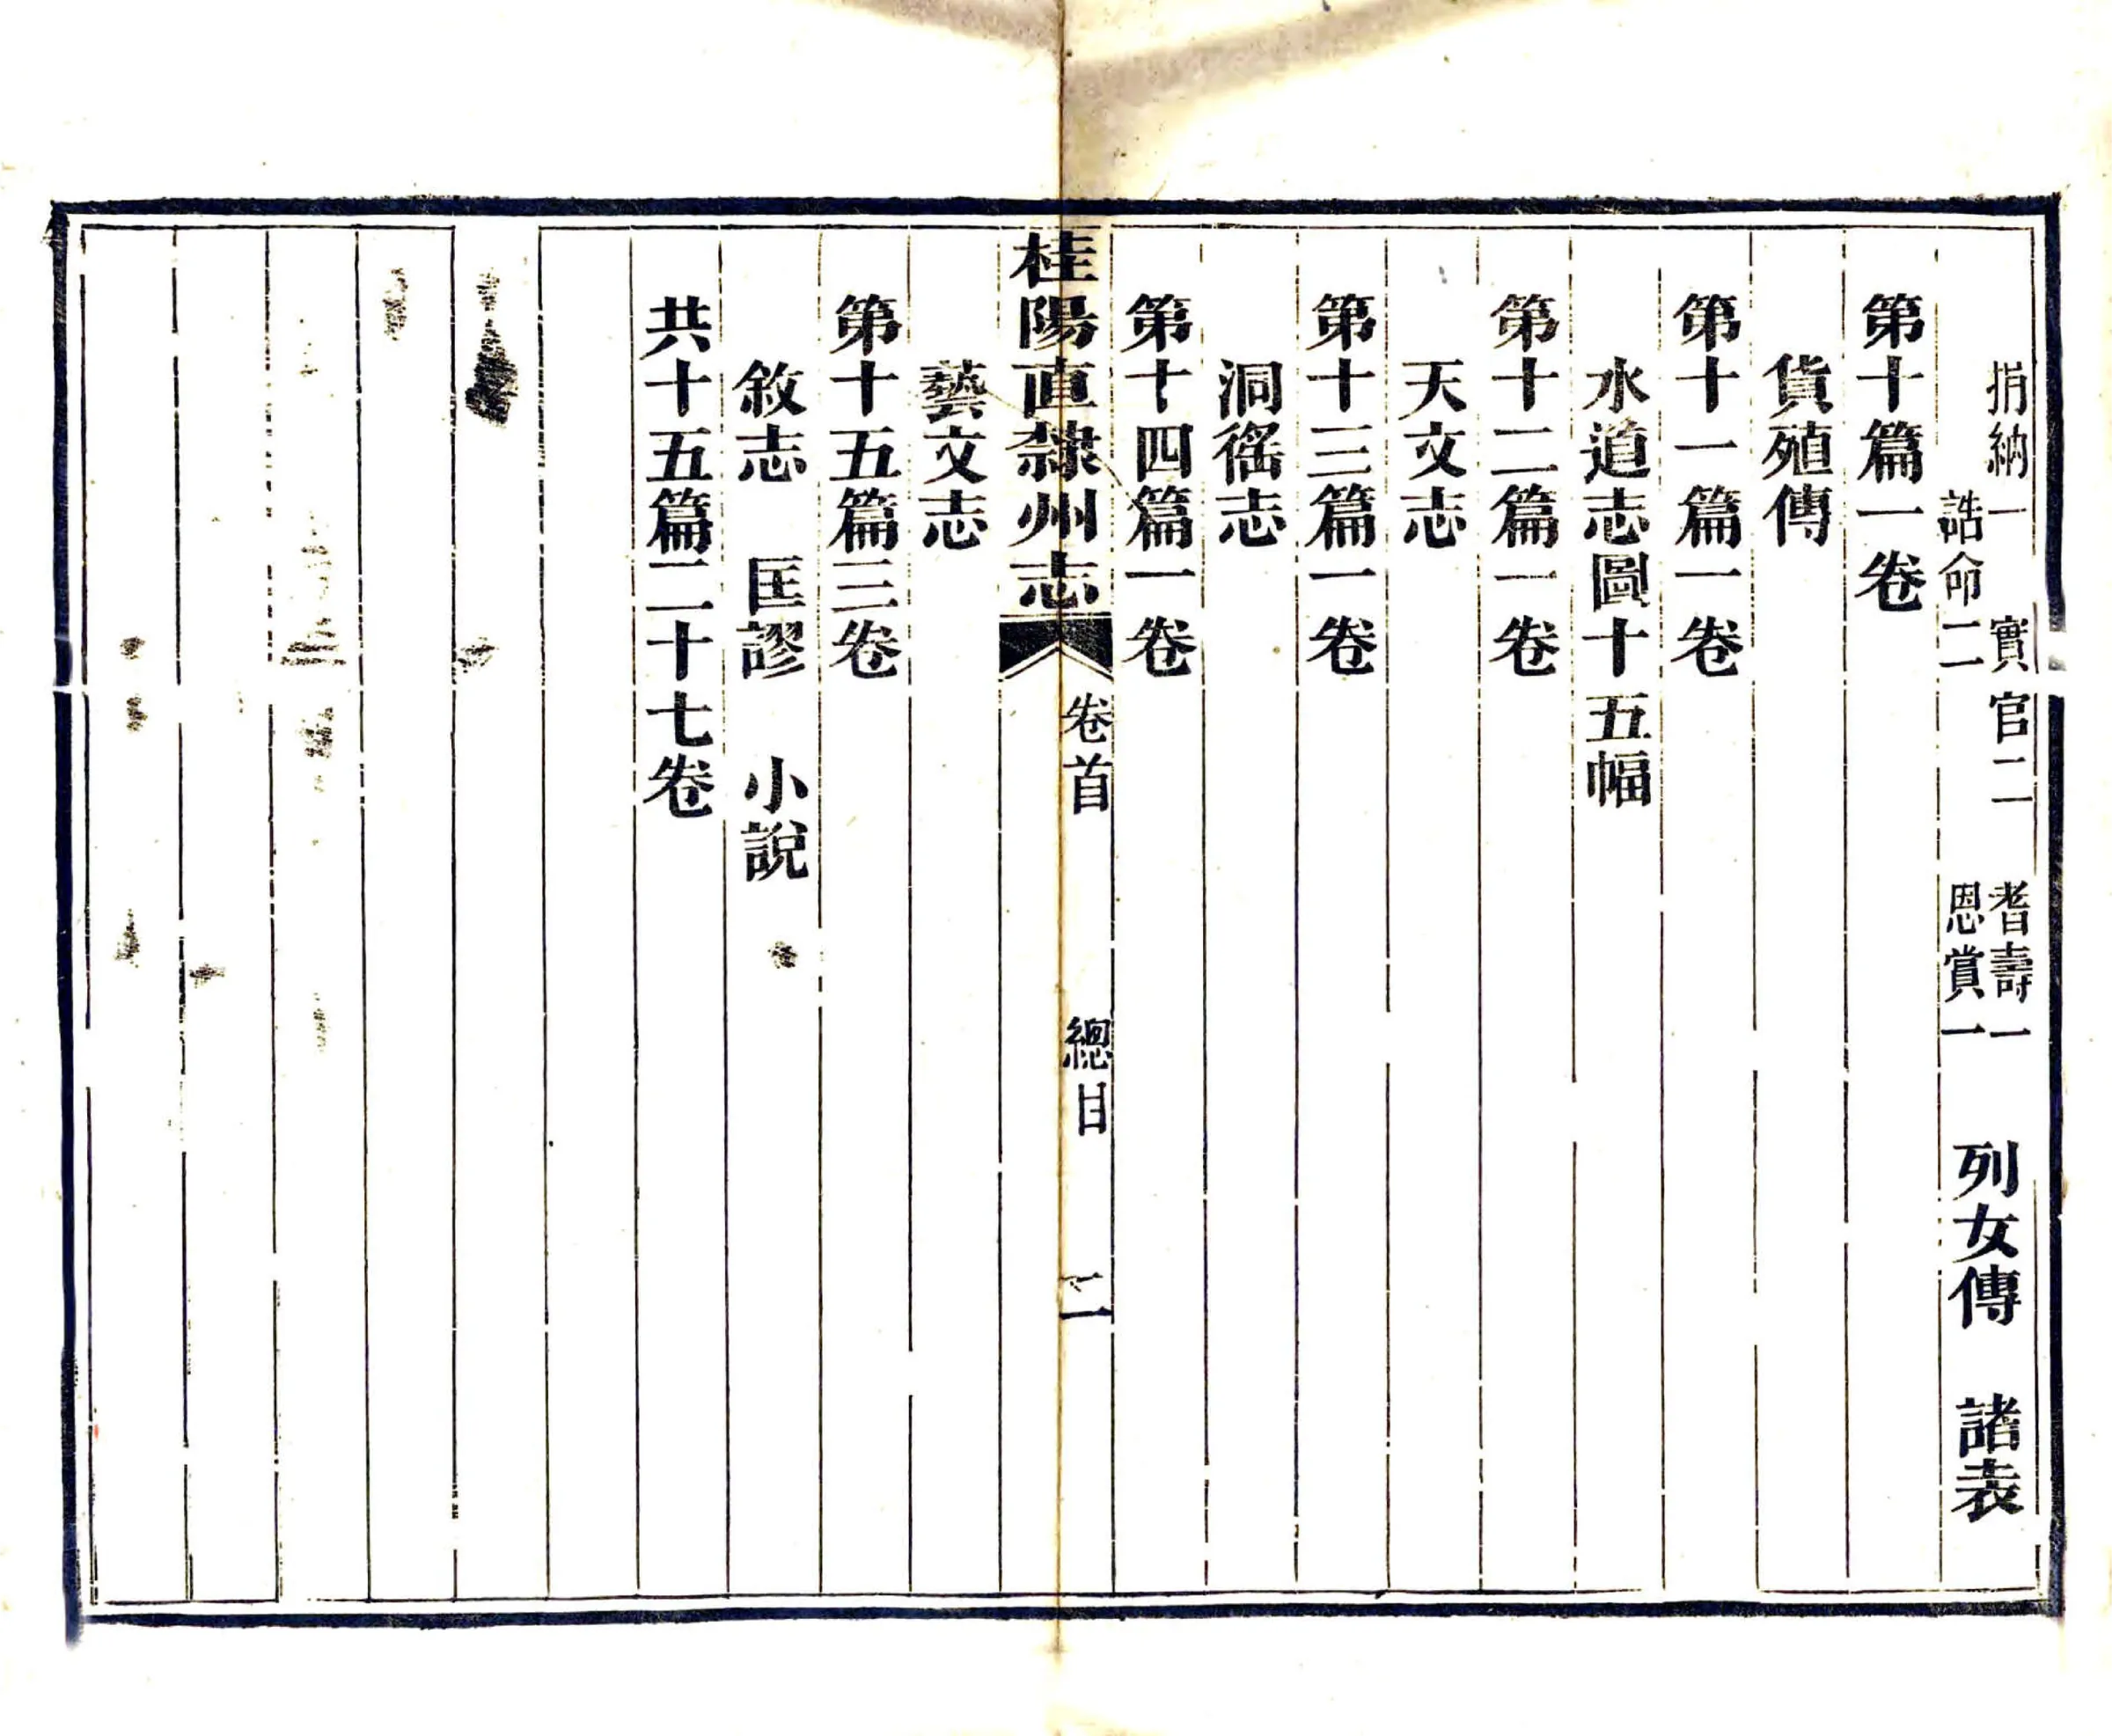 捐納一　實官二　耆壽一
誥命二　恩賞一　列女傳　諸表
第十篇一卷
貨殖傳
第十一篇一卷
水道志圖十五幅
第十二篇一卷
天文志
第十三篇一卷
洞傜志
第十四篇一卷
桂陽直隸州志　卷首　總目　二
藝文志
第十五篇三卷
敘志　匡謬　小說
共十五篇二十七卷